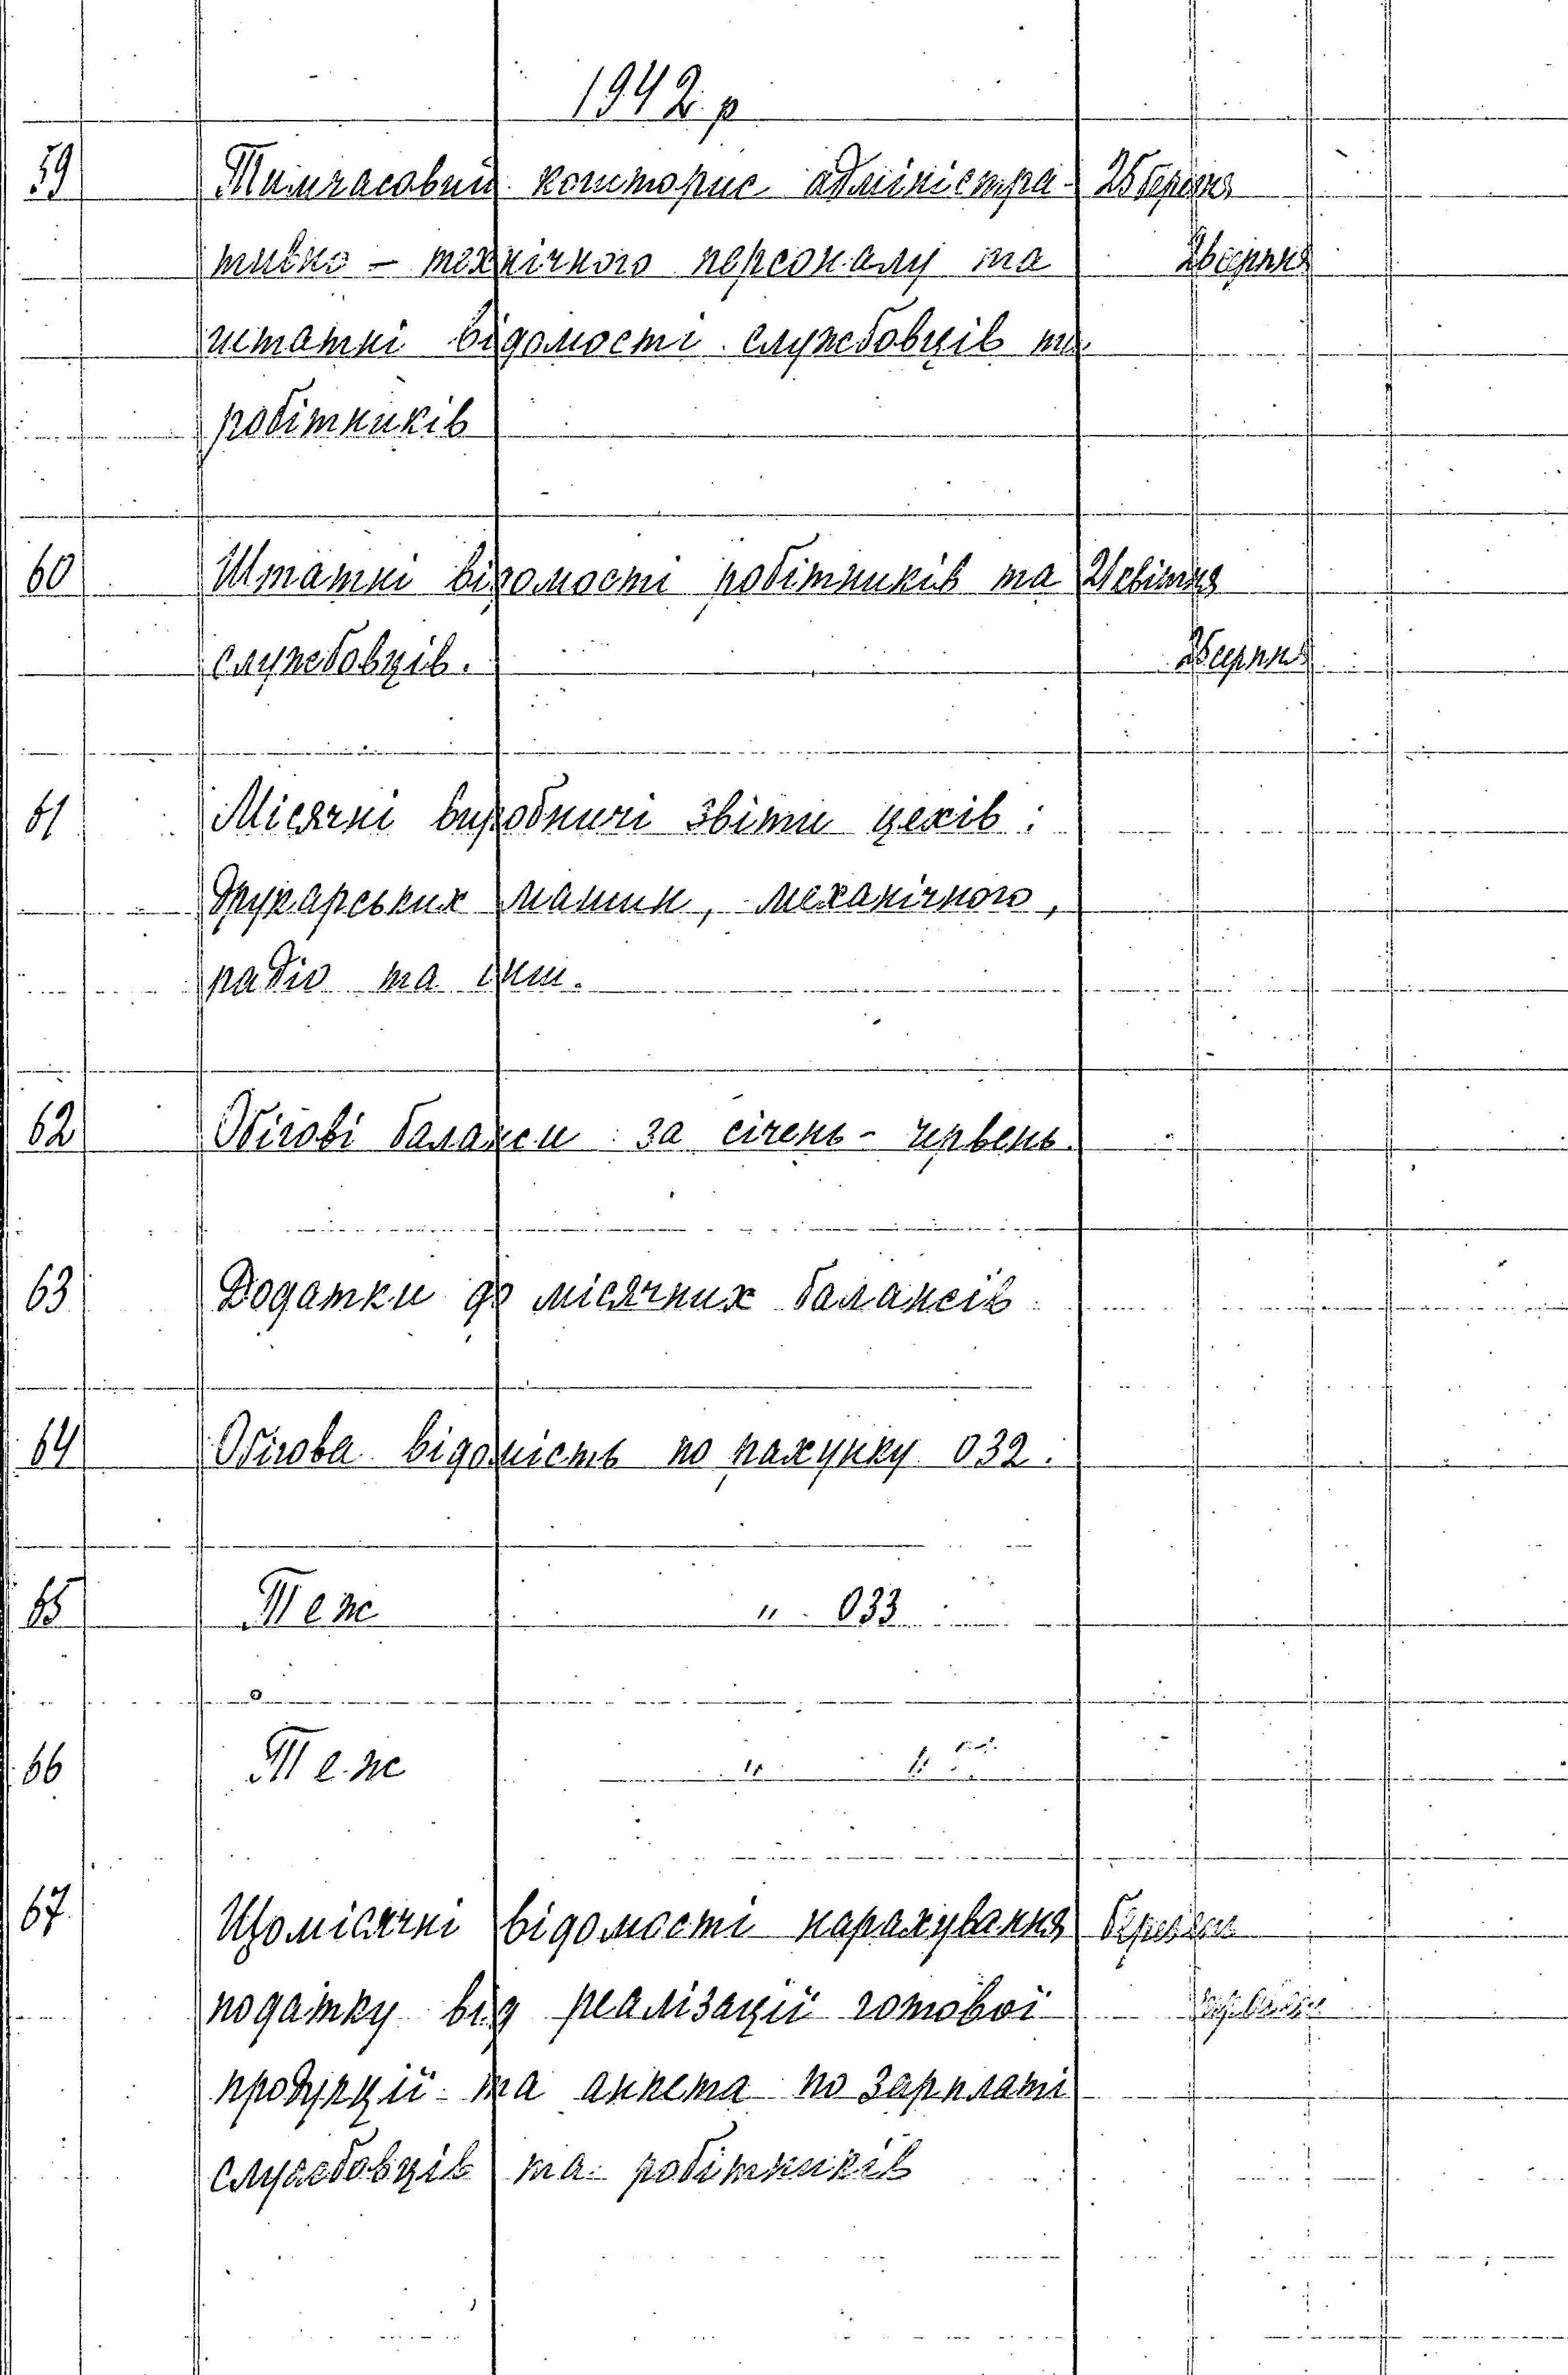 1942 р
59 Тимчасовий кошторис адміністра- 25 березня
тивно - технічного персоналу та серпня
штатні відомості службовців та
робітників
60 Штатні відомості робітників та 21 квітня
службовців. серпня
61 Місячні виробничі звіти цехів:
друкарських машин, механічного,
радіо та інш.
62 Обігові баланси за січень - червень.
63 Додатки до місячних балансів
64 Обігова відомість по рахунку 032.
65 Теж " 033
66 Теж " "
67 Щомісячні відомості нарахування березень
податку від реалізації готової
продукції та анкета по зарплаті
службовців та робітників